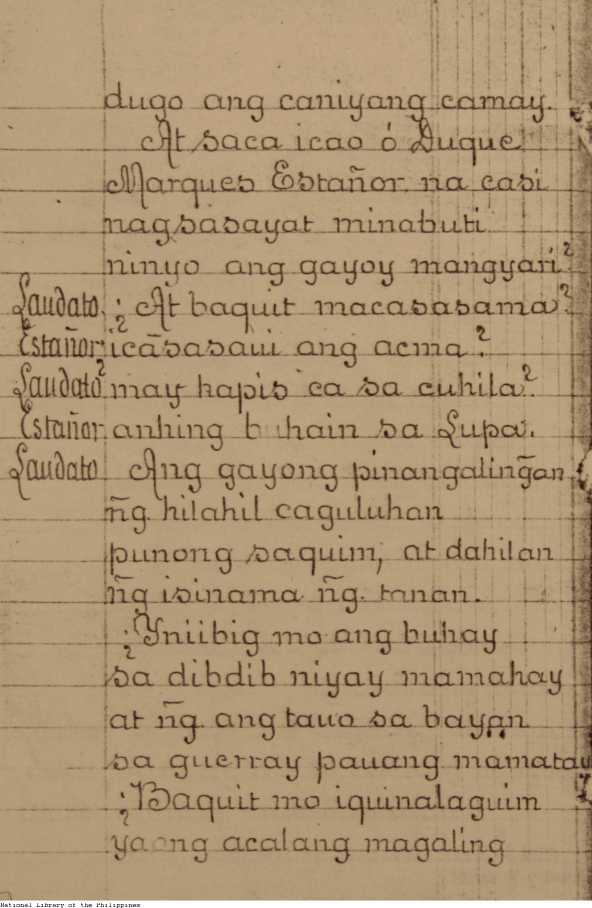 dugo ang caniyang camay.
At saca icao ó Duque
Marques Estañor na casi
nagsasayat minabuti
ninyo ang gayoy mangyari?
Laudato. ¿At baquit macasasama?
Estañor. icãsasaui ang acma?
Laudato? may hapis ca sa cuhila?
Estañor. anhing buhain sa Lupa.
Laudato Ang gayong pinangalinḡan
ñg hilahil caguluhan
punong saquim, at dahilan
ñg isinama ñg. tanan.
¿Yniibig mo ang buhay
sa dibdib niyay mamahay
at ñg. ang tauo sa bayan
sa guerray pauang mamatay
¿Baquit mo iquinalaguim
yaong acalang magaling
National Library of the Philippines